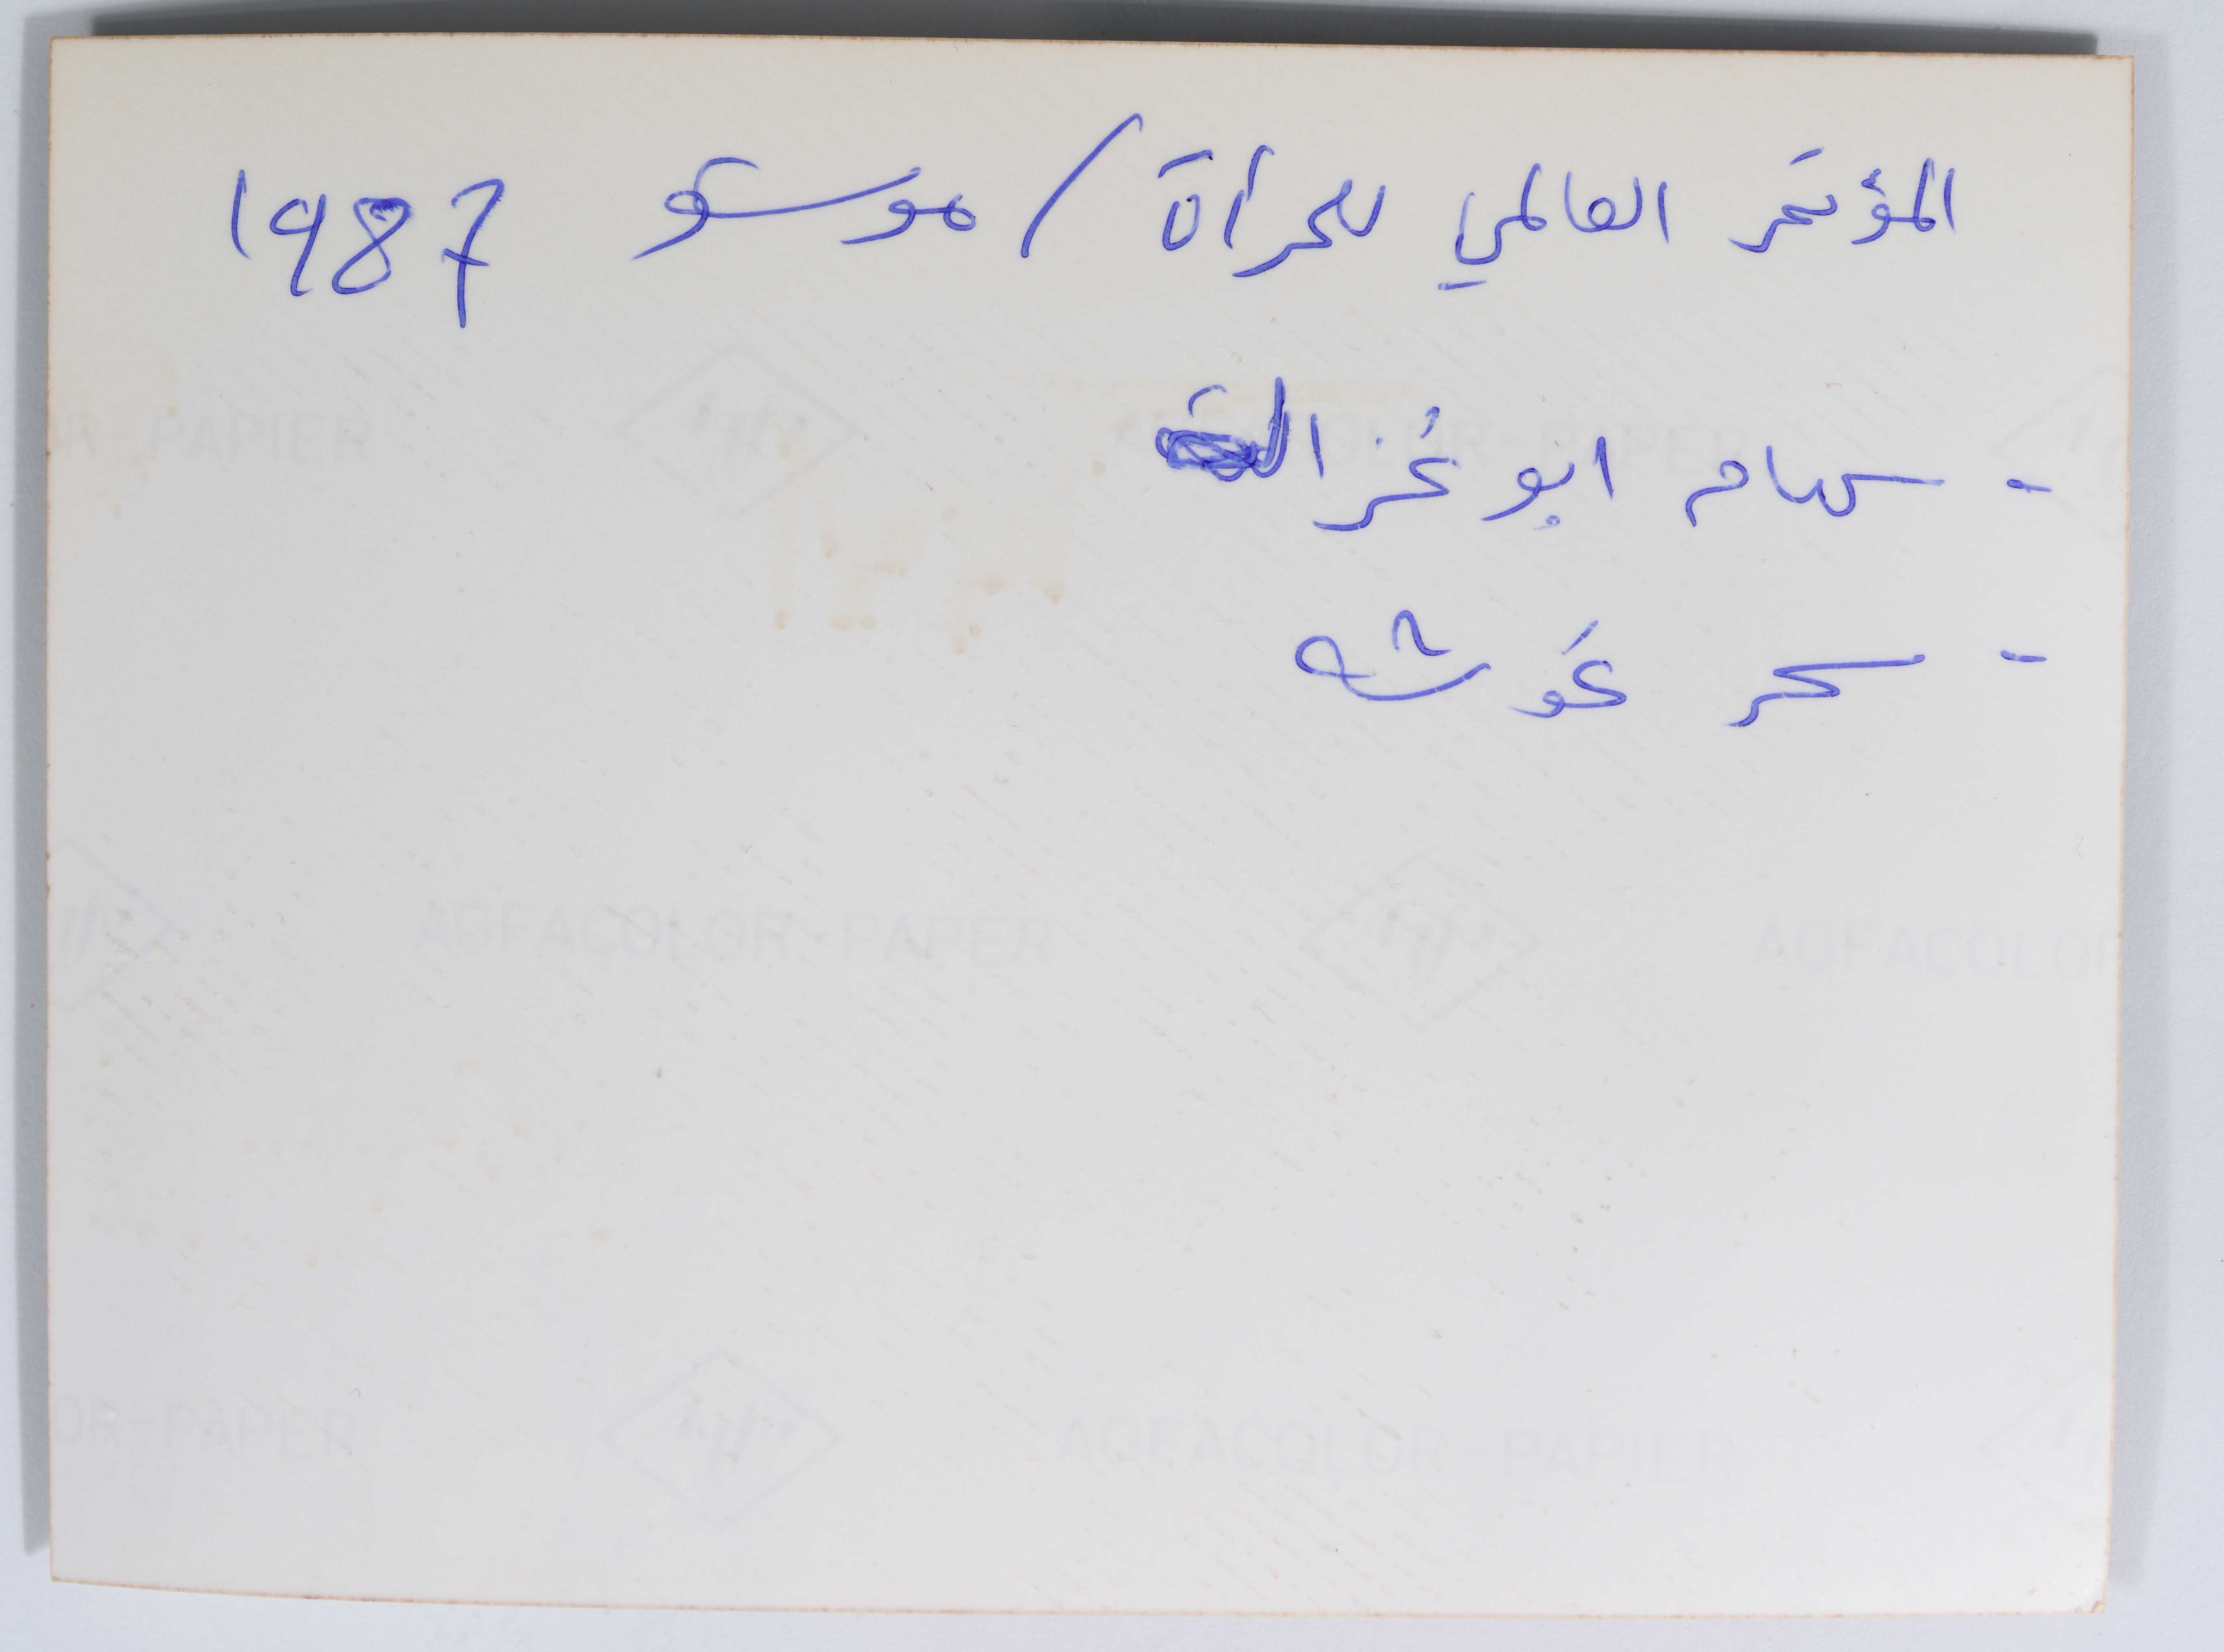 المؤتمر العالمي للمرأة / موسكو 1987
- سهام ابو غزالة
- سحر غوشه
R-PAPIER AGFACOLOR-PAPIER
AGFACOLOR-PAPER AGFACOLOR
OR-PAPER AGFACOLOR-PAPIER